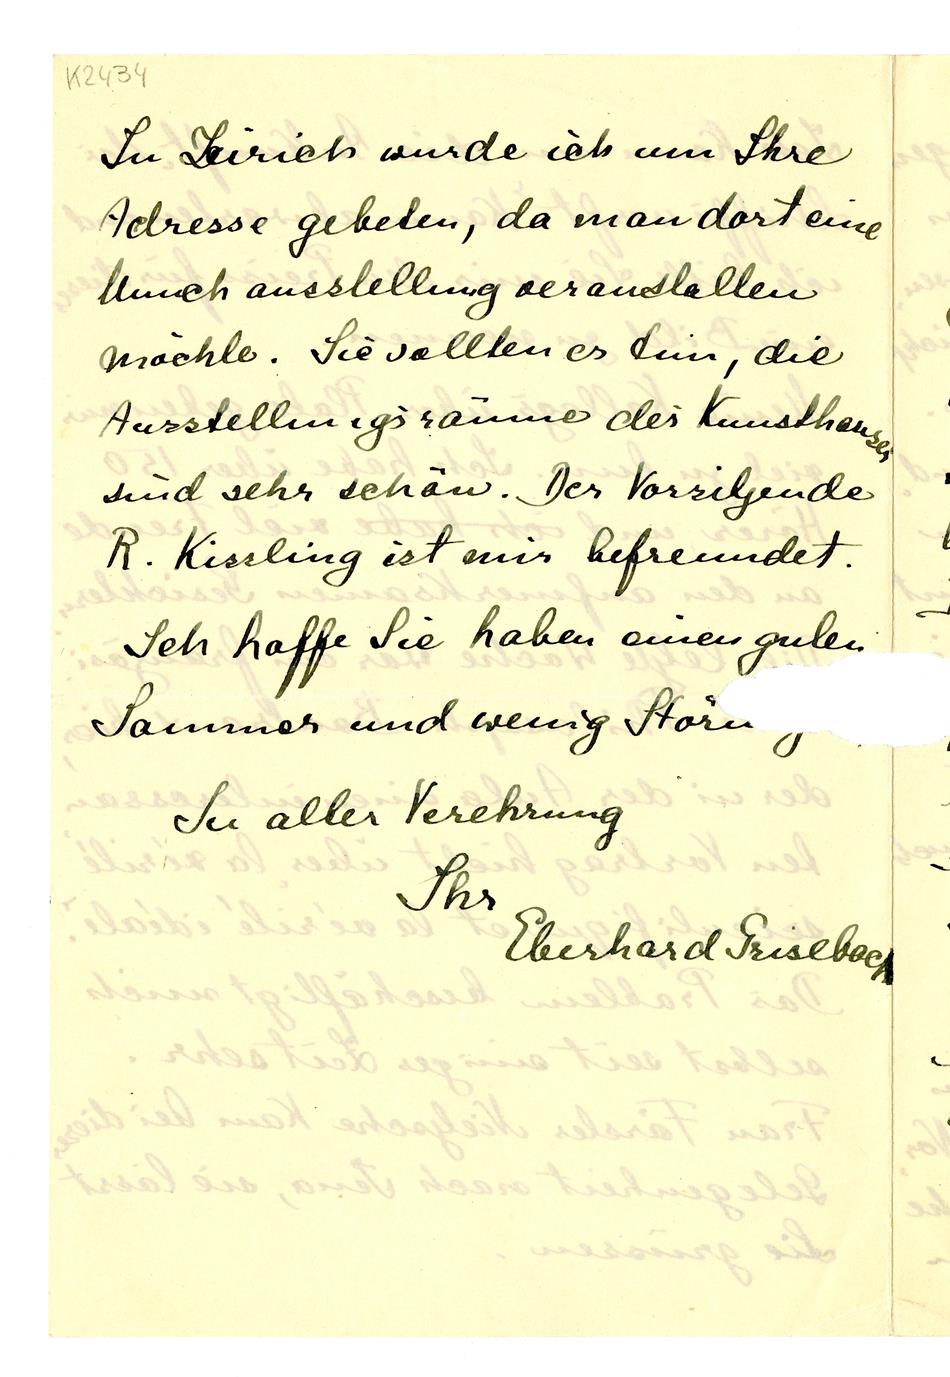 K2434
In Zürich wurde ich um Ihre
Adresse gebeten, da man dort eine
Munch ausstellung veranstalten
möchte. Sie sollten es tun, die
Ausstellungsräume des Kunsthauses
sind sehr schön. Der Vorsitzende
R. Kissling ist mir befreundet.
Ich hoffe Sie haben einen guten
Sommer und wenig Störu
In aller Verehrung
Ihr
Eberhard Grisebach